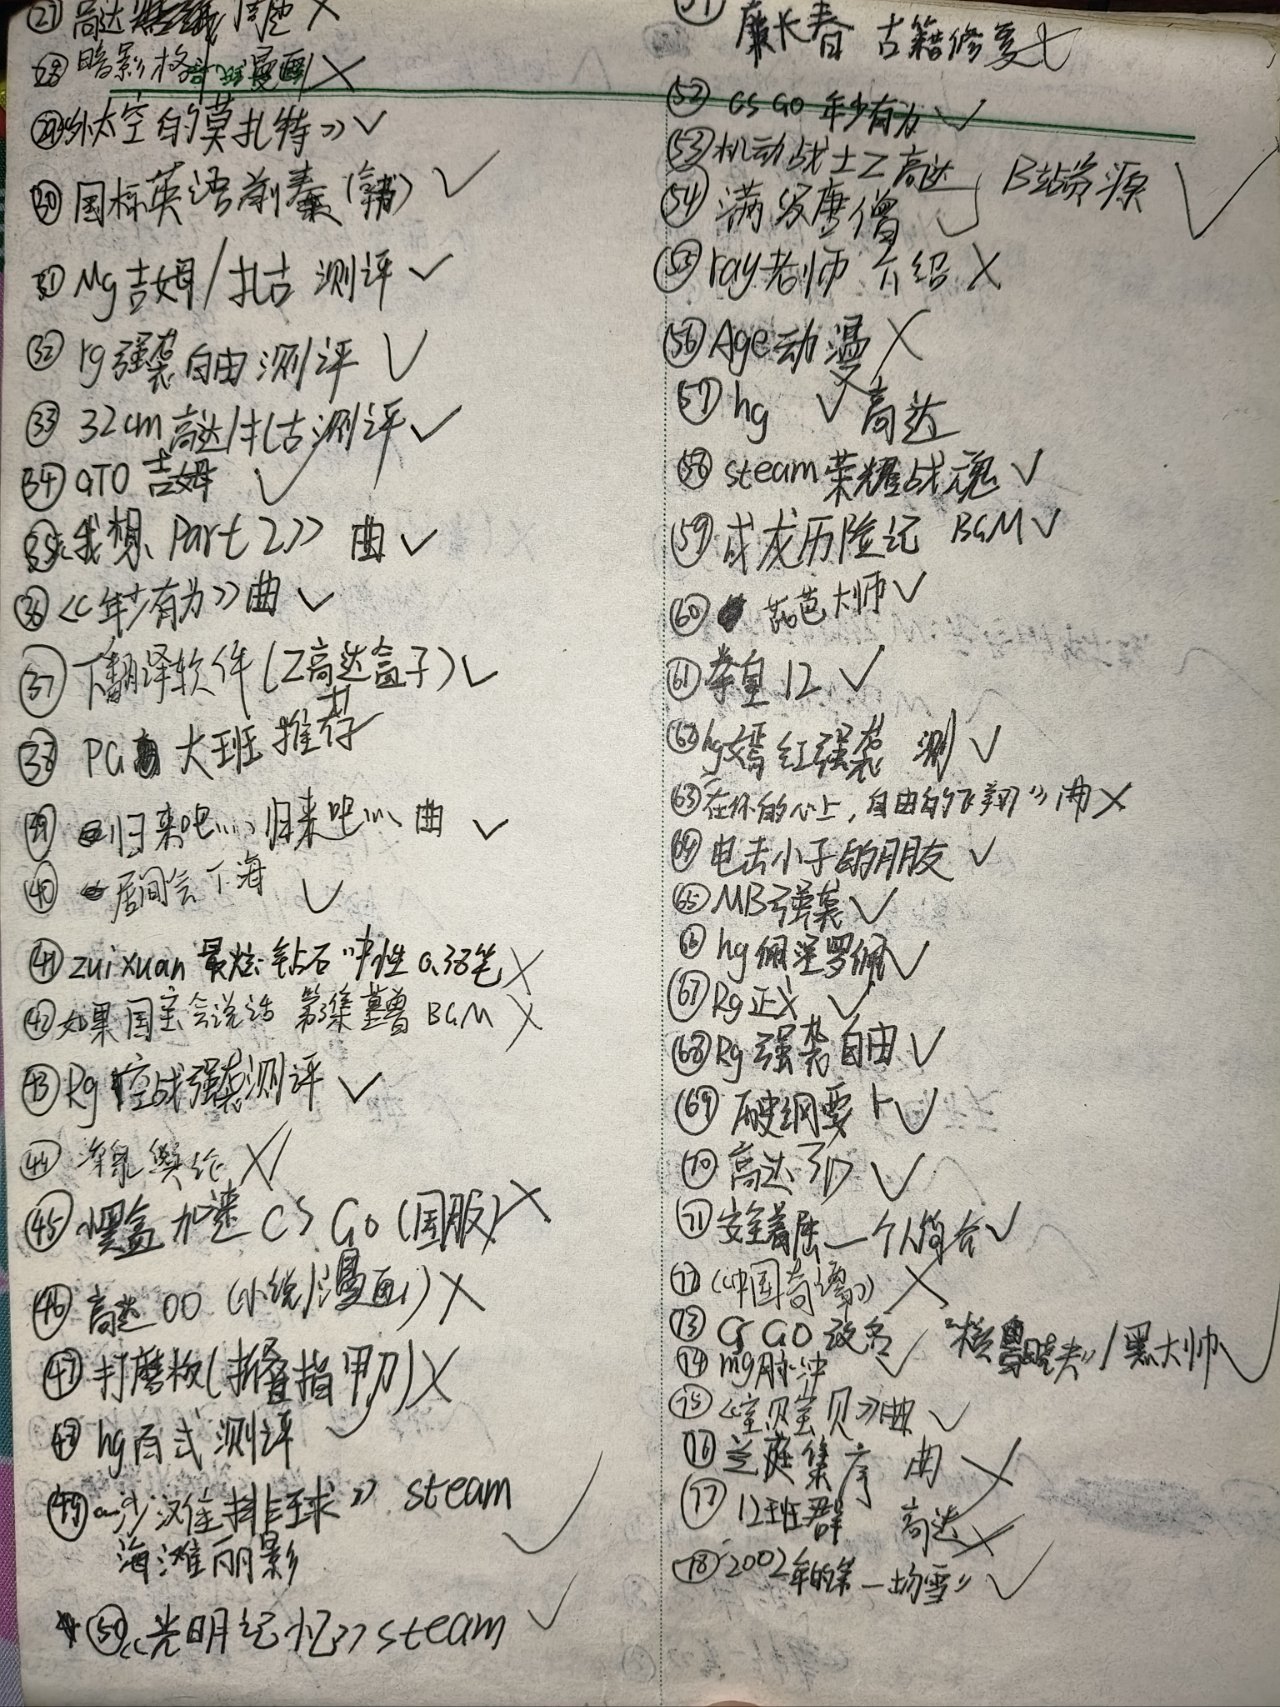 ㉗ 高达
㉘ 暗影格斗 漫画
㉙《外太空的莫扎特》
㉚ 国标英语前奏
㉛ Mg吉姆/扎古 测评
㉜ rg强袭自由测评
㉝ 32cm高达/扎古测评
㉞ GTO 吉姆
㉟《我想 Part 2》 曲
㊱《年少有为》曲
㊲ 下翻译软件(Z高达盒子)
㊳ PG 大班推荐
㊴ 归来吧 归来吧 曲
㊵ 居间会下海
㊶ zuixuan 最炫 钻石 中性 0.38笔
㊷ 如果国宝会说话 第3集 BGM
㊸ Rg 空战强袭测评
㊹
㊺ 小黑盒加速 CS GO(国服)
㊻ 高达 00 (小说/漫画)
㊼ 打磨板(折叠指甲刀)
㊽ hg百式测评
㊾《沙滩排球》 steam
海滩丽影
㊿《光明记忆》steam
51 廉长春 古籍修复
52 CS GO 年少有为
53 机动战士Z高达 B站资源
54 满级唐僧
55 ray老师 介绍
56 Age动漫
57 hg 高达
58 steam荣耀战魂
59 成龙历险记 BGM
60 芭芭大师
61 拳皇12
62 hg嫣红强袭 测
63 在你的心上,自由的飞翔" 曲
64 电击小子的朋友
65 MB强袭
66 hg佩涅罗佩
67 Rg正义
68 Rg 强袭自由
69 历史纲要上
70 高达 3D
71 安全着陆 一个人简介
72《中国奇谭》
73 CS GO 改名 "核粤晓夫"/黑大帅
74 mg脉冲
75《宝贝宝贝》曲
76 兰庭集序 曲
77 12班群 高达
78 "2002年的第一场雪"